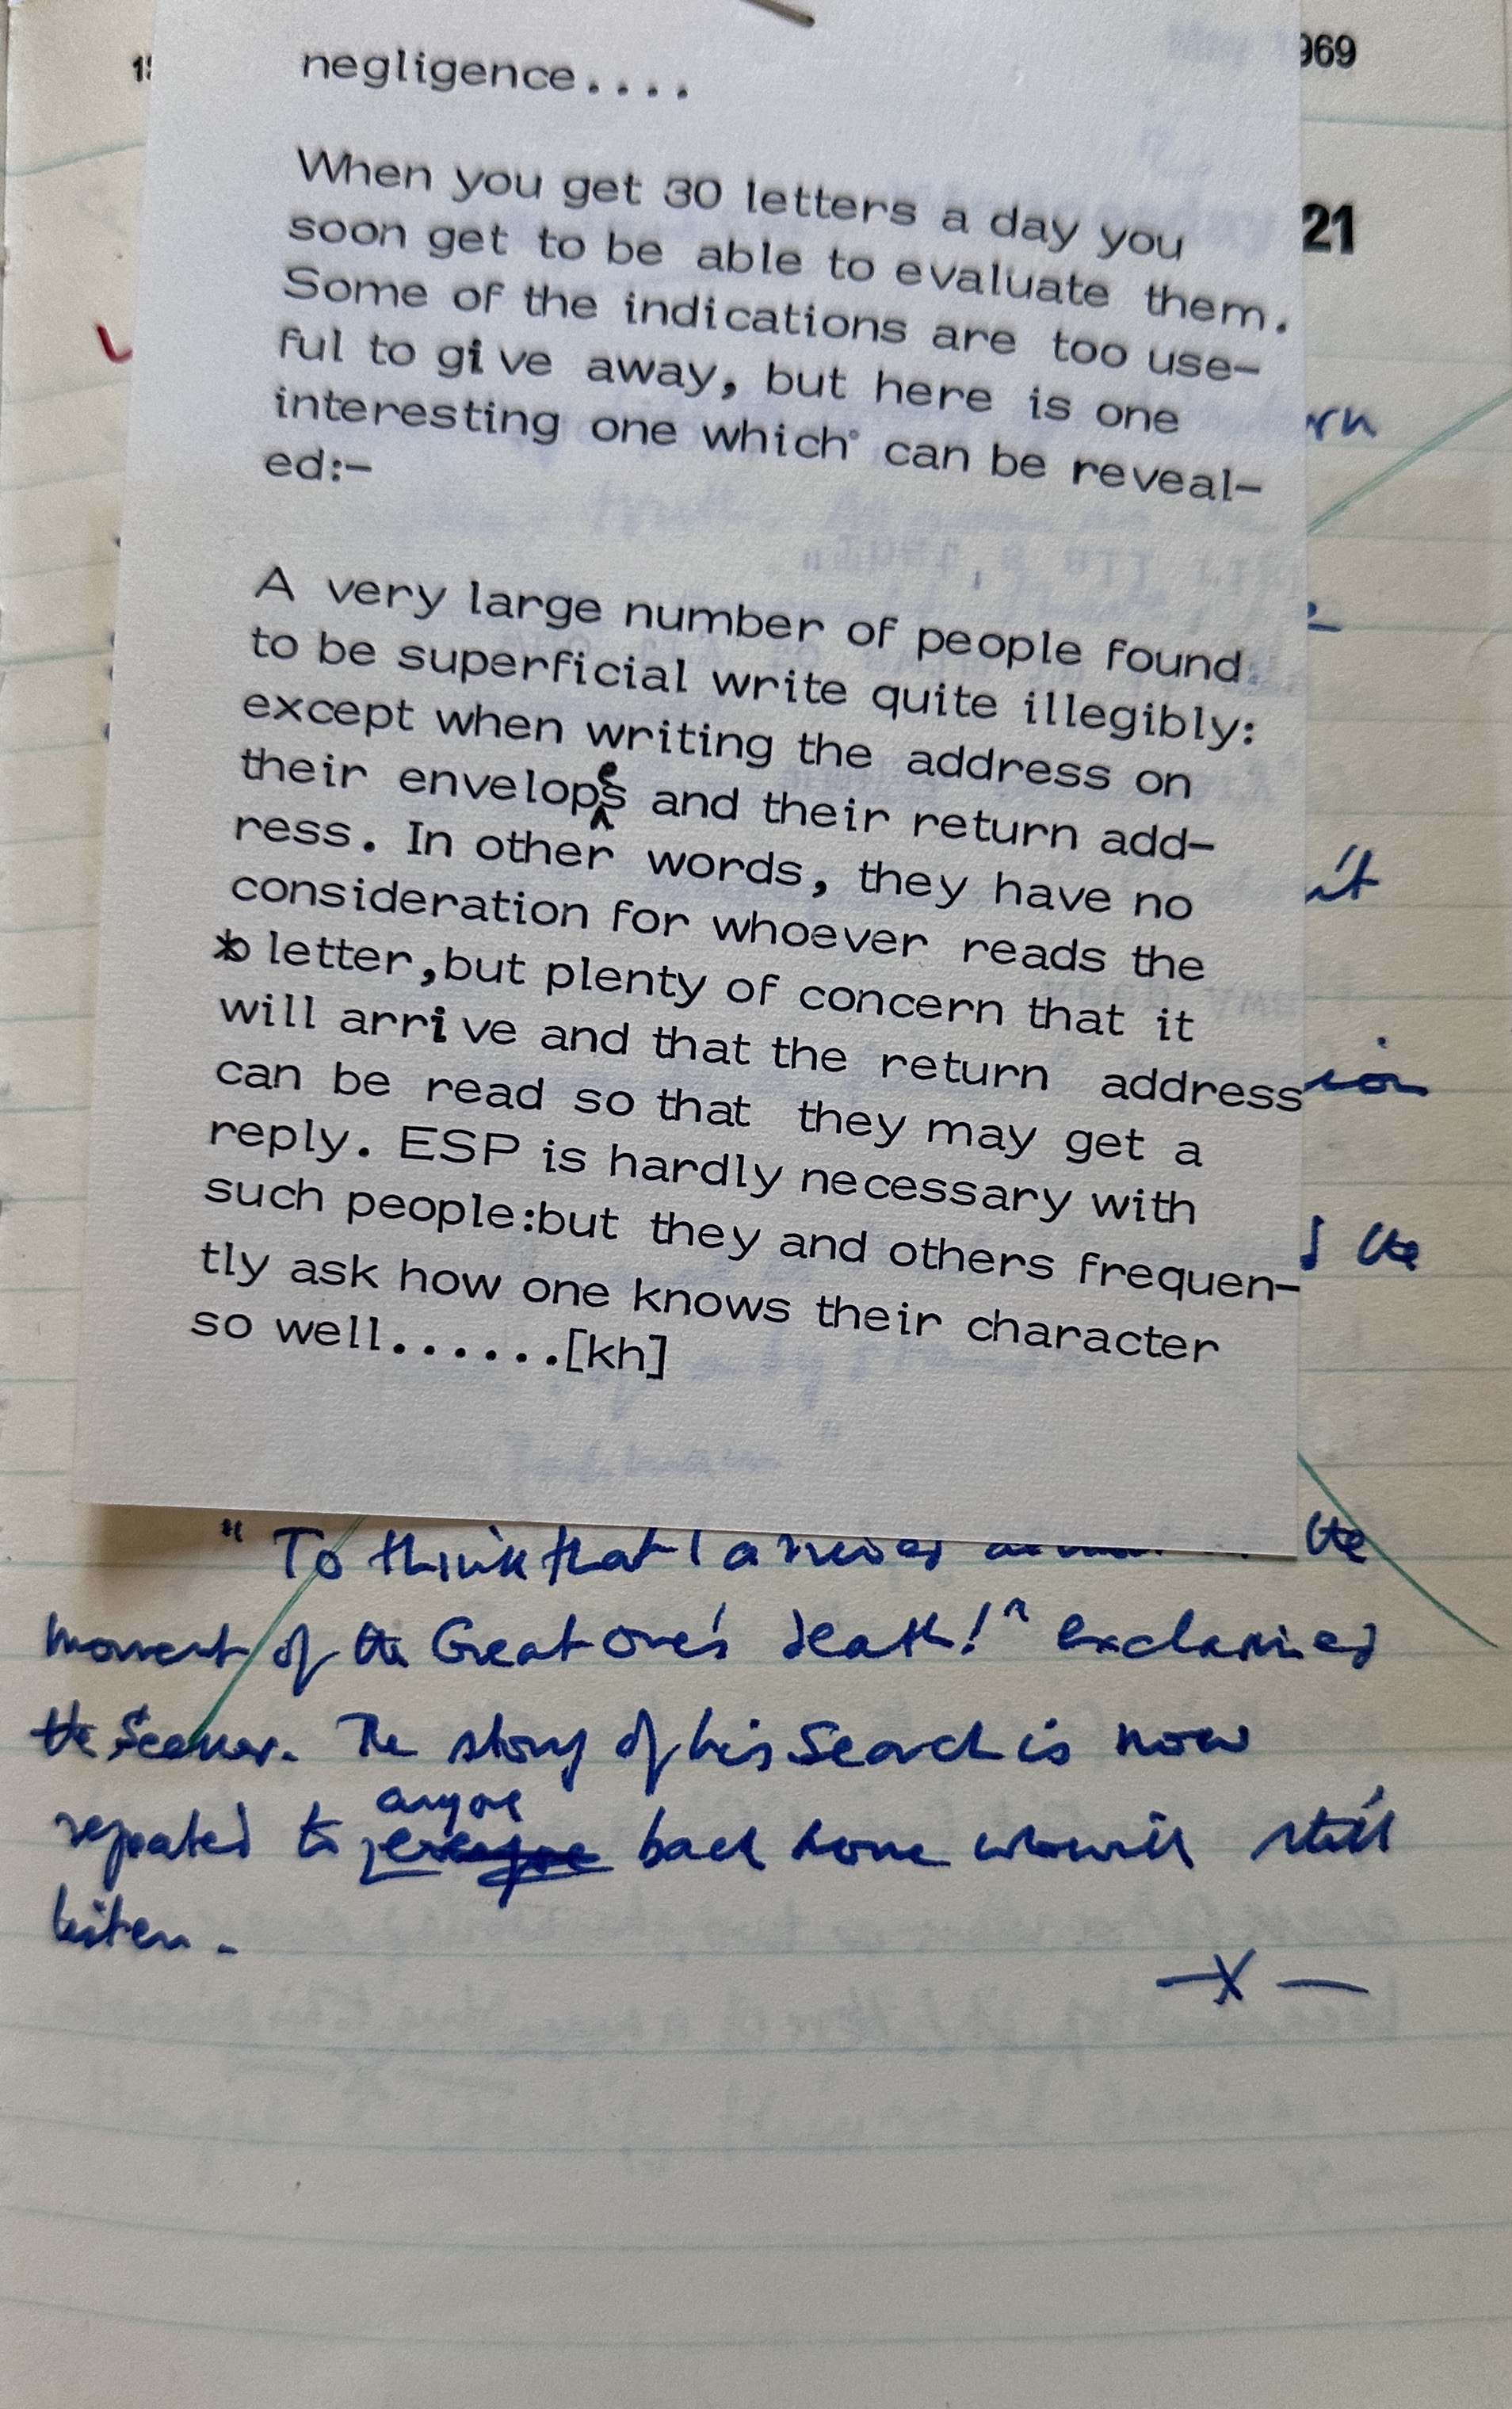 1969
21
negligence....
When you get 30 letters a day you
soon get to be able to evaluate them.
Some of the indications are too use-
ful to give away, but here is one
interesting one which can be reveal-
ed:-
A very large number of people found
to be superficial write quite illegibly:
except when writing the address on
their envelopes and their return add-
ress. In other words, they have no
consideration for whoever reads the
letter,but plenty of concern that it
will arrive and that the return address
can be read so that they may get a
reply. ESP is hardly necessary with
such people:but they and others frequen-
tly ask how one knows their character
so well......[kh]
it
the
"To think that I arrived the
moment of the Great One's death!" exclaimed
the Seeker. The story of his Search is now
anyone
repeated to back home who will still
listen.
—X—